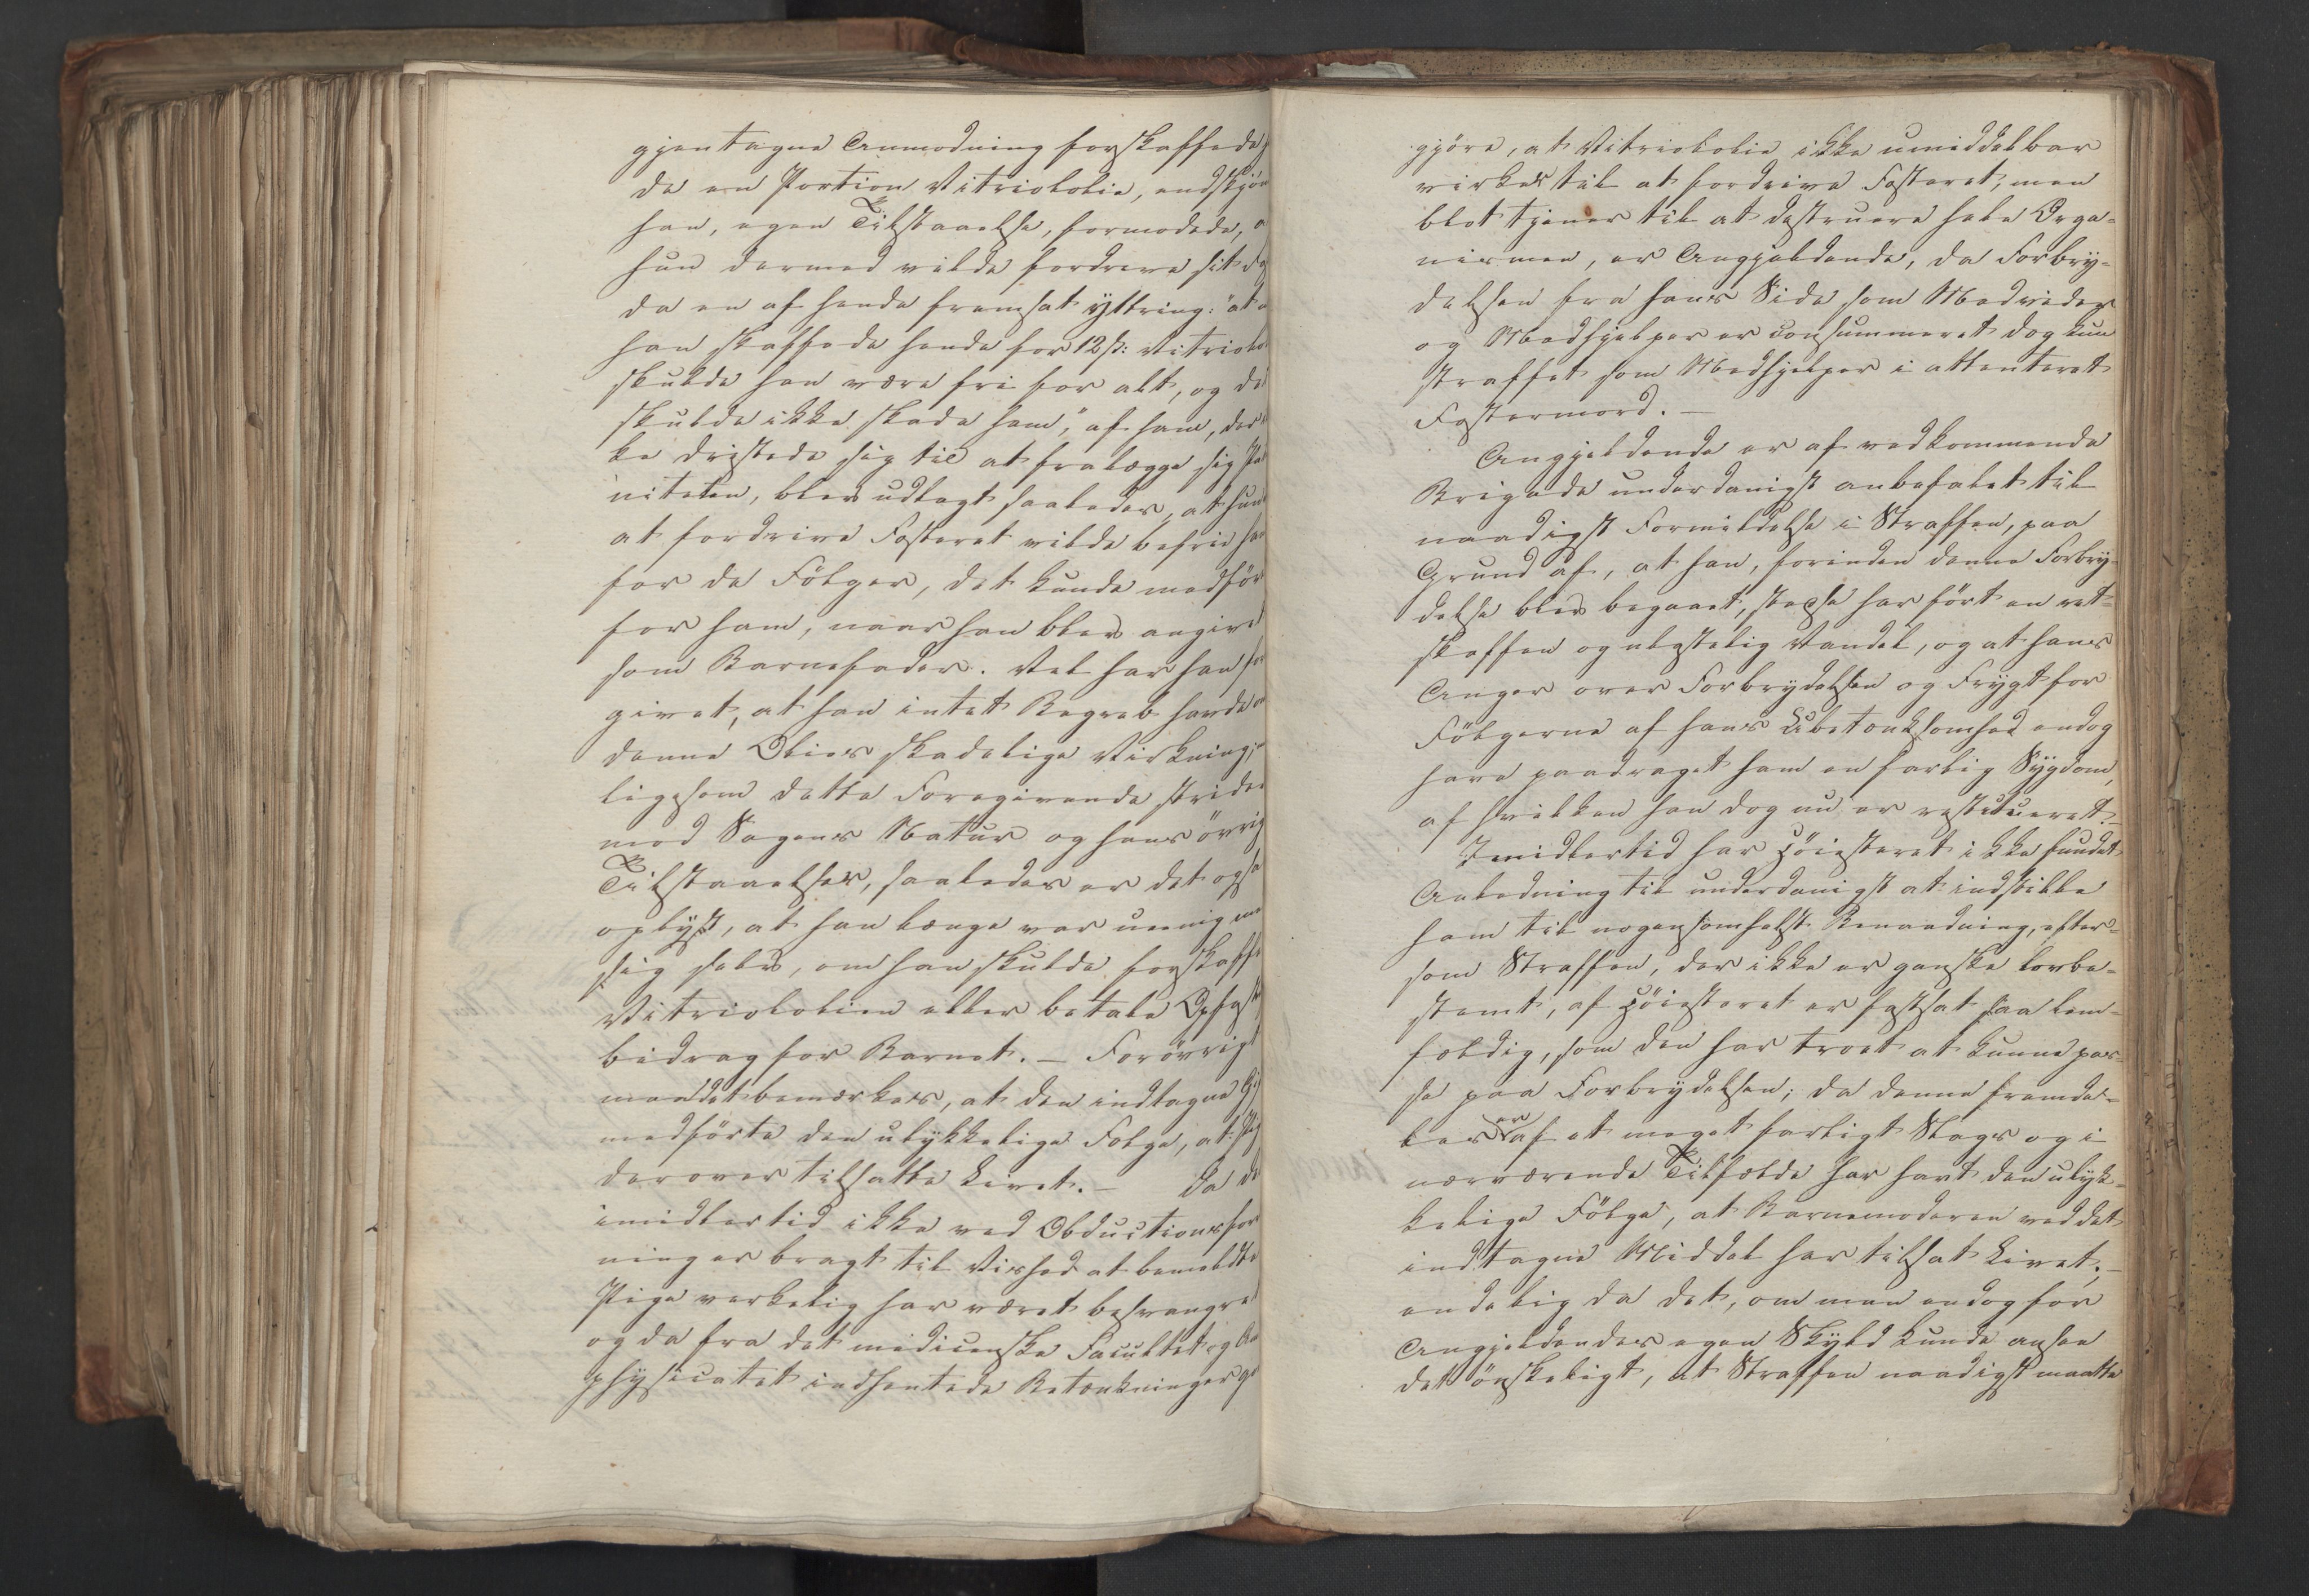 gjentagne Anmodning forskaffede h
de en Portion Vitriololie, endskjøn
han, egen Tilstaaelse, formodede, a
hun dermed vilde fordreve sit Fo
da en af hende fremsat Yttring: "at
han skaffede hende for 12 ß: Vitriolo
skulde han være fri for alt, og det
skulde ikke skade ham", af ham, der
ke dristede sig til at fralægge sig Pat
niteten, blev udlagt saaledes, at hun
at fordrive Fosteret vilde befrie ha
for de Følger, det kunde medfør
for ham, naar han blev angivet
som Barnefader. Vel har han for
givet, at han intet Begreb havde o
denne Olies skadelige Virkning;
ligesom dette Foregivende strider
mod Sagens Natur og hans øvrig
Tilstaaelser, saaledes er det ogsa
oplyst, at han længe var uenig me
sig selv, om han skulde forskaffe
Vitriololien eller betale Opfost
bidrag for Barnet. – Forøvrigt
mandet bemærkes, at den indtagne Gi
medførte den ulykkelige Følge, at Pig
derover tilsatte Livet. – Da de
imidlertid ikke ved Obductionsfor
ning er bragt til Vished at bemeldte
Pige verkelig har været besvangret
og da fra det medicinske Facultet og La
physicatet indhentede Betænkninger go
gjøre, at Vitriololie ikke umiddelbar
virker til at fordrive Fosteret, men
blot tjener til at destruere hele Orga-
nismen, er Angjeldende, da Forbry-
delsen fra hans Side som Medvider
og Medhjelper er consummeret dog kun
straffet som Medhjelper i attenteret
Fostermord. –
Angjeldende er af vedkommende
Brigade underdanigst anbefalet til
naadigst Formildelse i Straffen, paa
Grund af, at han, forinden denne Forbry-
delse blev begaaet, stedse har ført en ret-
skaffen og ulastelig Vandel, og at hans
Anger over Forbrydelsen og Frygt for
Følgerne af hans Ubetænksomhed endog
have paadraget ham en farlig Sygdom,
af hvilken han dog nu er restitueret. –
Imidlertid har Høiesteret ikke fundet
Anledning til underdanigst at indstille
ham til nogensomhelst Benaadning, efter-
som Straffen, der ikke er ganske lovbe-
stemt, af Høiesteret er fastsat saa lem-
fældig, som den har troet at kunne pas-
se paa Forbrydelsen; da denne fremde-
les er af et meget farligt Slags og i
nærværende Tilfælde har havt den ulyk-
kelige Følge, at Barnemoderen ved det
indtagne Middel har tilsat Livet; –
endelig da det, om man endog for
Angjeldendes egen Skyld kunde ansee
det ønskeligt, at Straffen naadigst maatte